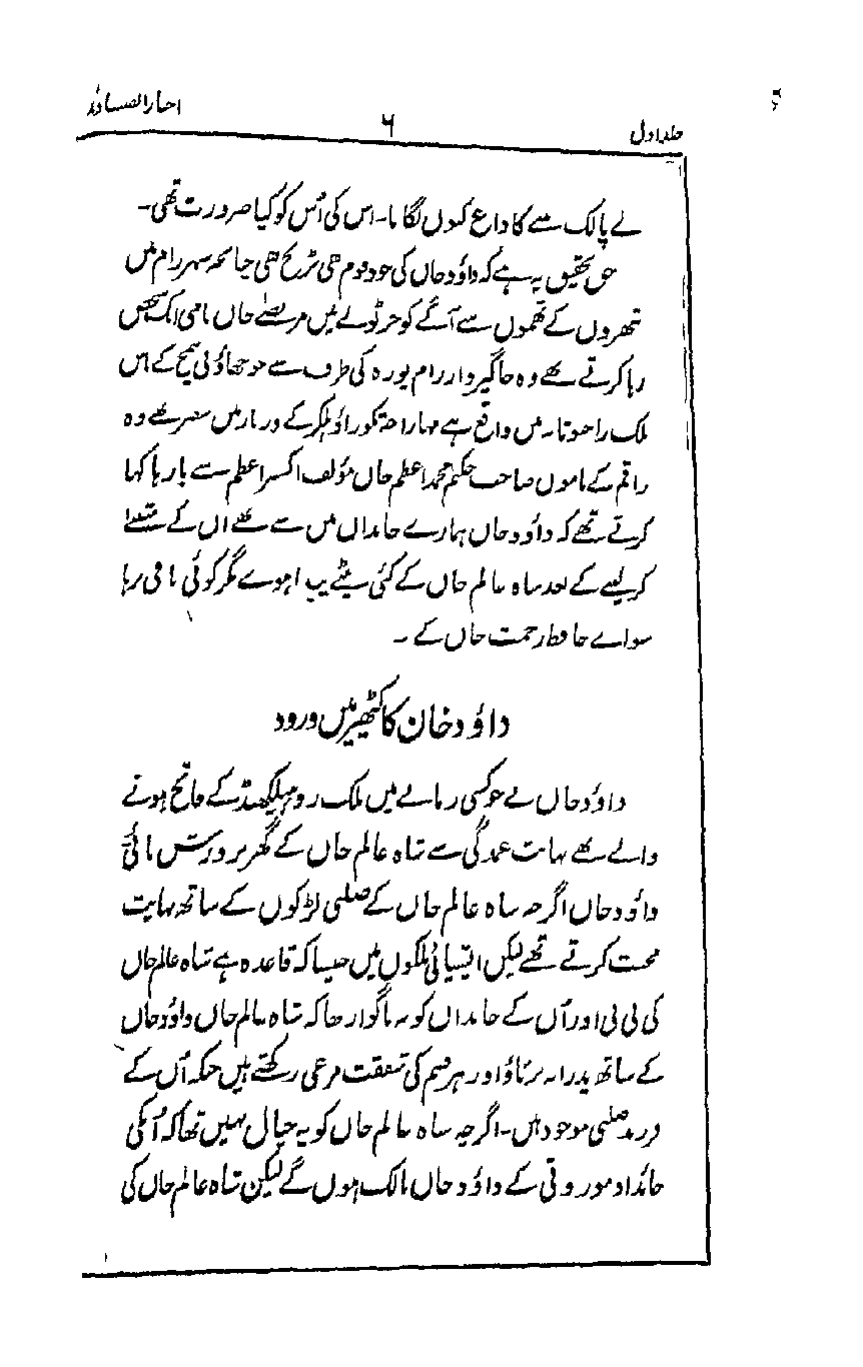 اخبار الصنادید
۶
جلد اول
لے پالک سے کا داغ کیوں لگایا۔ اس کی اُس کو کیا ضرورت تھی۔
حق تحقیق یہ ہے کہ داؤد خاں کی جو قوم تھی بڑیچ تھی چنانچہ سہرام میں
پتھروں کے تھموں سے آگے کو جو ٹولے میں مرتضےٰ خاں نامی ایک شخص
رہا کرتے تھے وہ جاگیردار رام پورہ کی طرف سے جو چھاؤنی نیمچ کے پاس
ملک راجپوتانہ میں واقع ہے مہاراجہ تکوراؤ ہلکر کے دربار میں سفیر تھے وہ
راقم کے ماموں صاحب حکیم محمد اعظم خاں مؤلف اکسیر اعظم سے بارہا کہا
کرتے تھے کہ داؤد خاں ہمارے خاندان میں سے تھے ان کے متبنےٰ
کر لینے کے بعد شاہ عالم خاں کے کئی بیٹے پیدا ہوے مگر کوئی باقی نرہا
سواے حافظ رحمت خاں کے ۔
داؤد خان کا کٹھیر میں ورود
داؤد خاں نے جو کسی زمانے میں ملک روہیلکھنڈ کے فاتح ہونے
والے تھے نہایت عمدگی سے شاہ عالم خاں کے گھر پرورش پائی
داؤد خاں اگرچہ شاہ عالم خاں کے صلبی لڑکوں کے ساتھ نہایت
محبت کرتے تھے لیکن ایشیائی ملکوں میں جیسا کہ قاعدہ ہے شاہ عالم خاں
کی بی بی اور اُن کے خاندان کو یہ ناگوار تھا کہ شاہ عالم خاں داؤد خاں
کے ساتھ پدرانہ برتاؤ اور ہر قسم کی شفقت مرعی رکھتے ہیں جبکہ اُن کے
فرزند صلبی موجود ہیں۔ اگرچہ شاہ عالم خاں کو یہ خیال نہیں تھا کہ اُنکی
جائداد موروثی کے داؤد خاں مالک ہوں گے لیکن شاہ عالم خاں کی